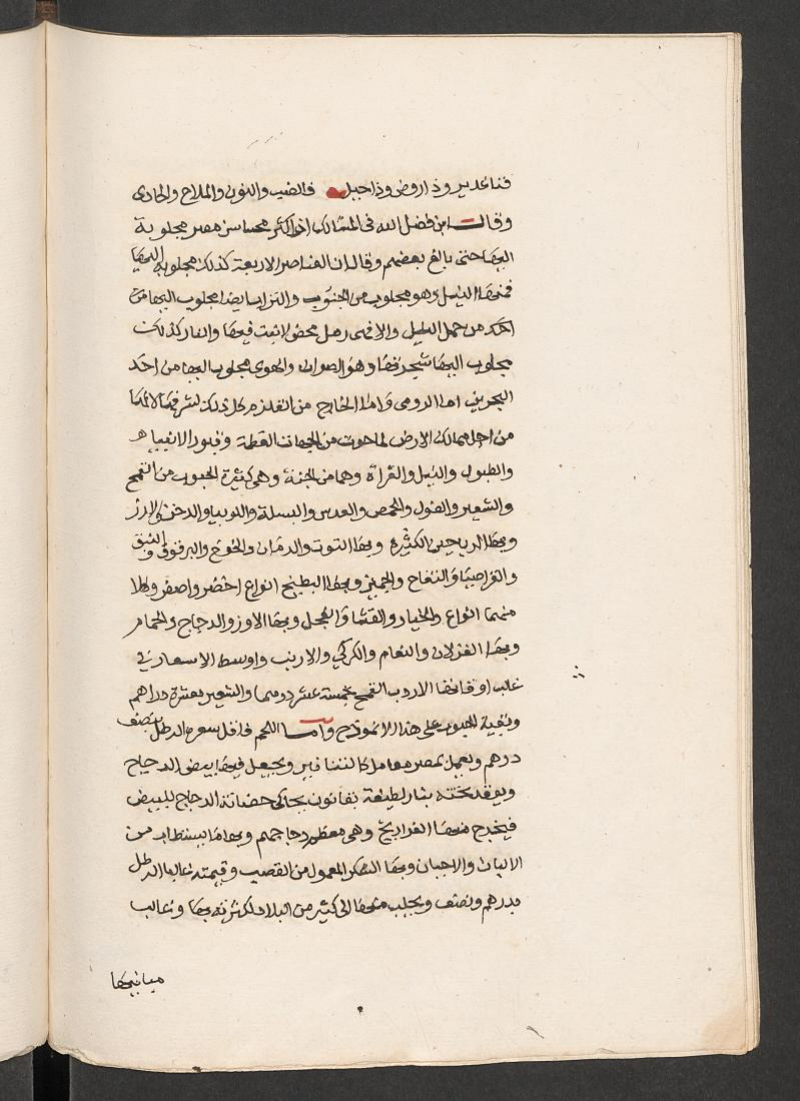 فذا غدير وذا روض وذا جبل فالضب والنون والملاح والحادى
وقال ابن فضل الله فى المسالك ان اكثر محاسن مصر مجلوبة
اليها حتى بالغ بعضهم وقال ان العناصر الاربعة كذلك مجلوبه اليها
فمنها النيل وهو مجلوب من الجنوب والتراب ايضا مجلوب اليها من
احد من حمل النيل والا فهى رمل محض لا ينبت فيها والنار كذلك
مجلوب اليها شجرتها وهو الصوان والهوى مجلوب اليها من احد
البحرين اما الرومى واما الخارج من القلزم كل ذلك لشرفها لانها
من اجل ممالك الارض لما حوت من الجهات القطة وقبور الانبياء
والطبول والنيل والفراة وهما من الجنة وهى كثيرة الحبوب من القمح
والشعير والفول والحمص والعدس والبسلة واللوبيا والدخن والارز
وبها الرياحين الكثيرة وبها التوت والرمان والخوخ والبرقوق والنبق
والقراصيا والتفاح والجميز وبها البطيخ انواع اخضر واصفر وكلا
منهما انواع والخيار والقثا والعجل وبها الاوز والدجاج والحمام
وبها الغزلان والنعام والكركي والارنب واوسط الاسعار فى
غالب اوقاتها الاردب القمح بخمسة عشر درهما والشعير بعشرة دراهم
وبقية الحبوب على هذا الانموذج واما اللحم فاقل سعره الرطل بنصف
درهم ويعمل بمصر معامل كالتنانير ويجعل فيها بيض الدجاج
ويوقد تحته بنار لطيفة بقانون يحاكى حضانة الدجاج للبيض
فيخرج منها الفراريخ وهى معظم دجاجهم وبها ما يستطاب من
الالبان والاجبان وبها السكر المعمول من القصب وقيمته غالبا الرطل
بدرهم ونصف ويجلب منها الى كثير من البلاد لكثرته بها وغالب
مبانيها